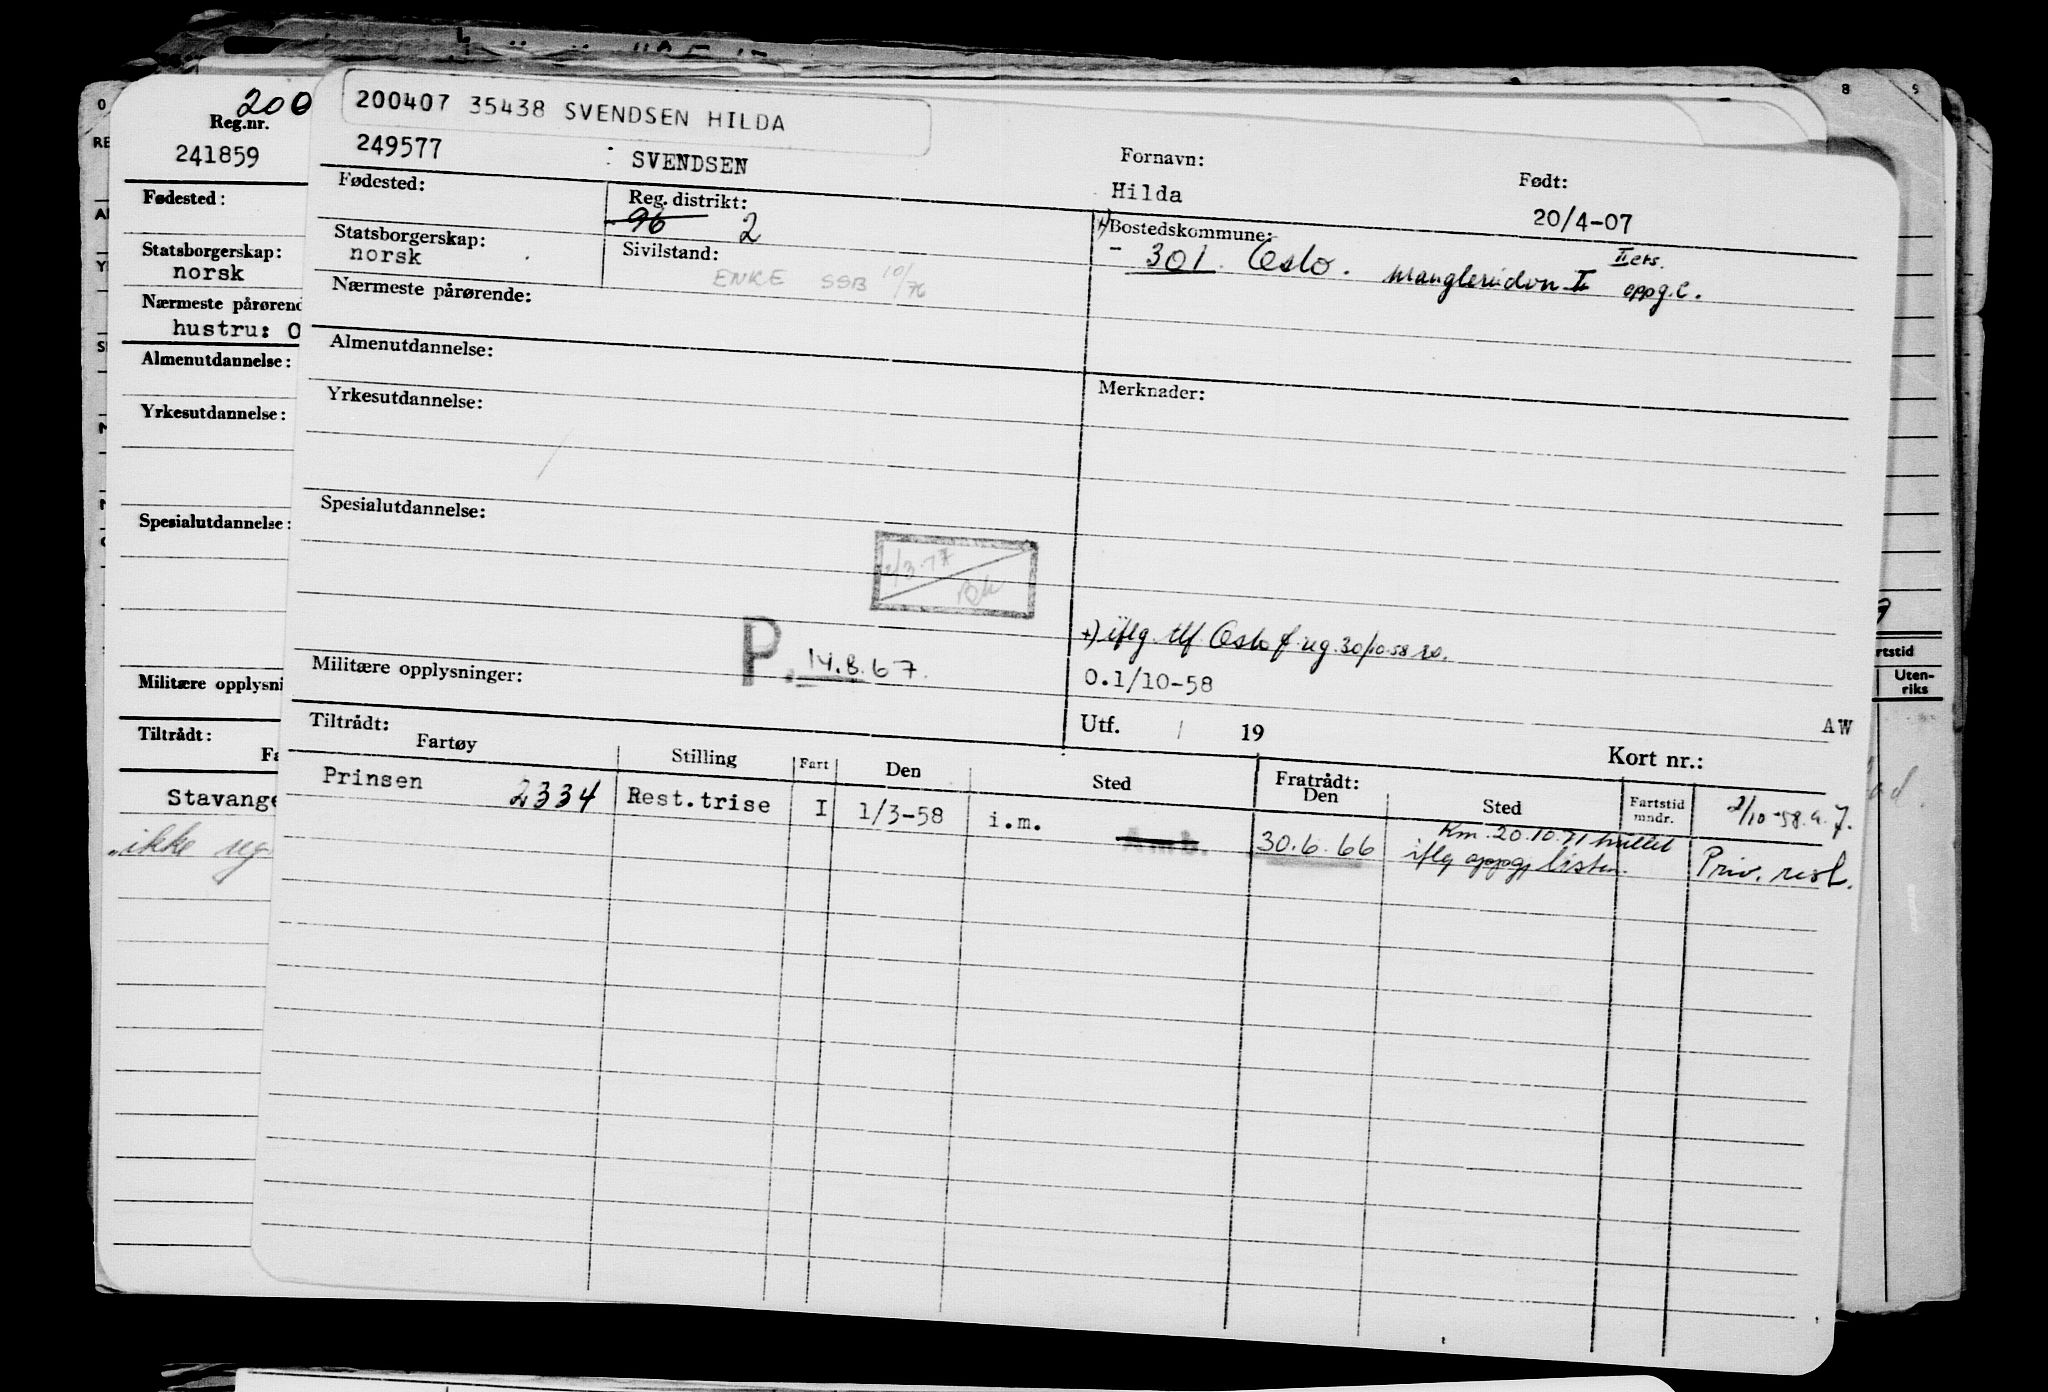 200
Reg.nr.
241859
Fødested:
Statsborgerskap:
norsk
Nærmeste pårørend
hustru: O
Almenutdannelse:
Yrkesutdannelse:
Spesialutdannelse:
Militære opplysni
Tiltrådt:
Fa
Stavange
ikke
200407 35438 SVENDSEN HILDA
249577
: SVENDSEN
Fornavn:
Hilda
Født:
20/4-07
Fødested:
Reg. distrikt:
96 2
Bostedskommune:
- 301. Oslo.
II
oppg. C.
Statsborgerskap:
norsk
Sivilstand:
ENKE SSB 10/76
Nærmeste pårørende:
Almenutdannelse:
Yrkesutdannelse:
Merknader:
Spesialutdannelse:
+) iflg. tlf. Oslo
0.1/10-58
Militære opplysninger:
P. 14.8.67.
Utf. / 19
AW
Kort nr.:
Tiltrådt:
Fartøy
Stilling
Fart
Den
Sted
Fratrådt:
Den
Sted
Fartstid
mndr.
Prinsen 2334
Rest.trise
I
1/3-58
i.m.
30.6.66
Km. 20.10.71
iflg oppg,
Priv. rest.
8
9
rtstid
Uten-
riks